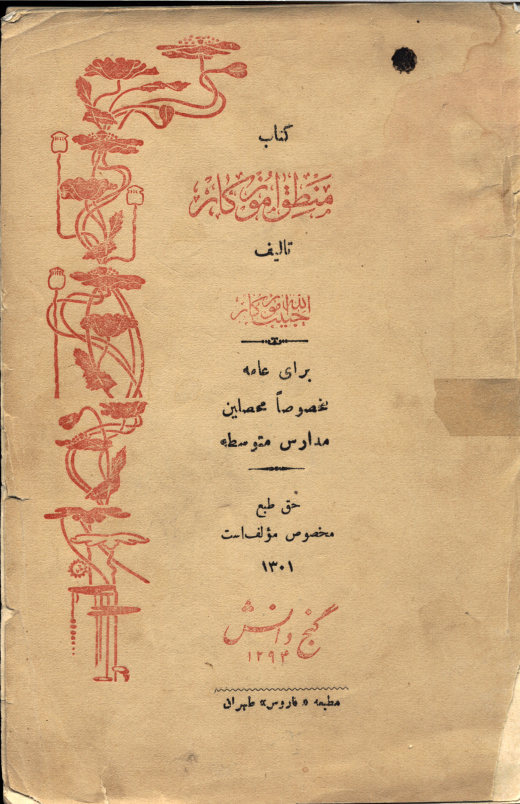 کتاب
منطق آموزگار
تالیف
حبیب الله آموزگار
برای عامه
بخصوصاً محصلین
مدارس متوسطه
حق طبع
مخصوص مؤلف است
۱۳۰۱
گنج دانش
۱۲۹۴
مطبعه «فاروس» طهران